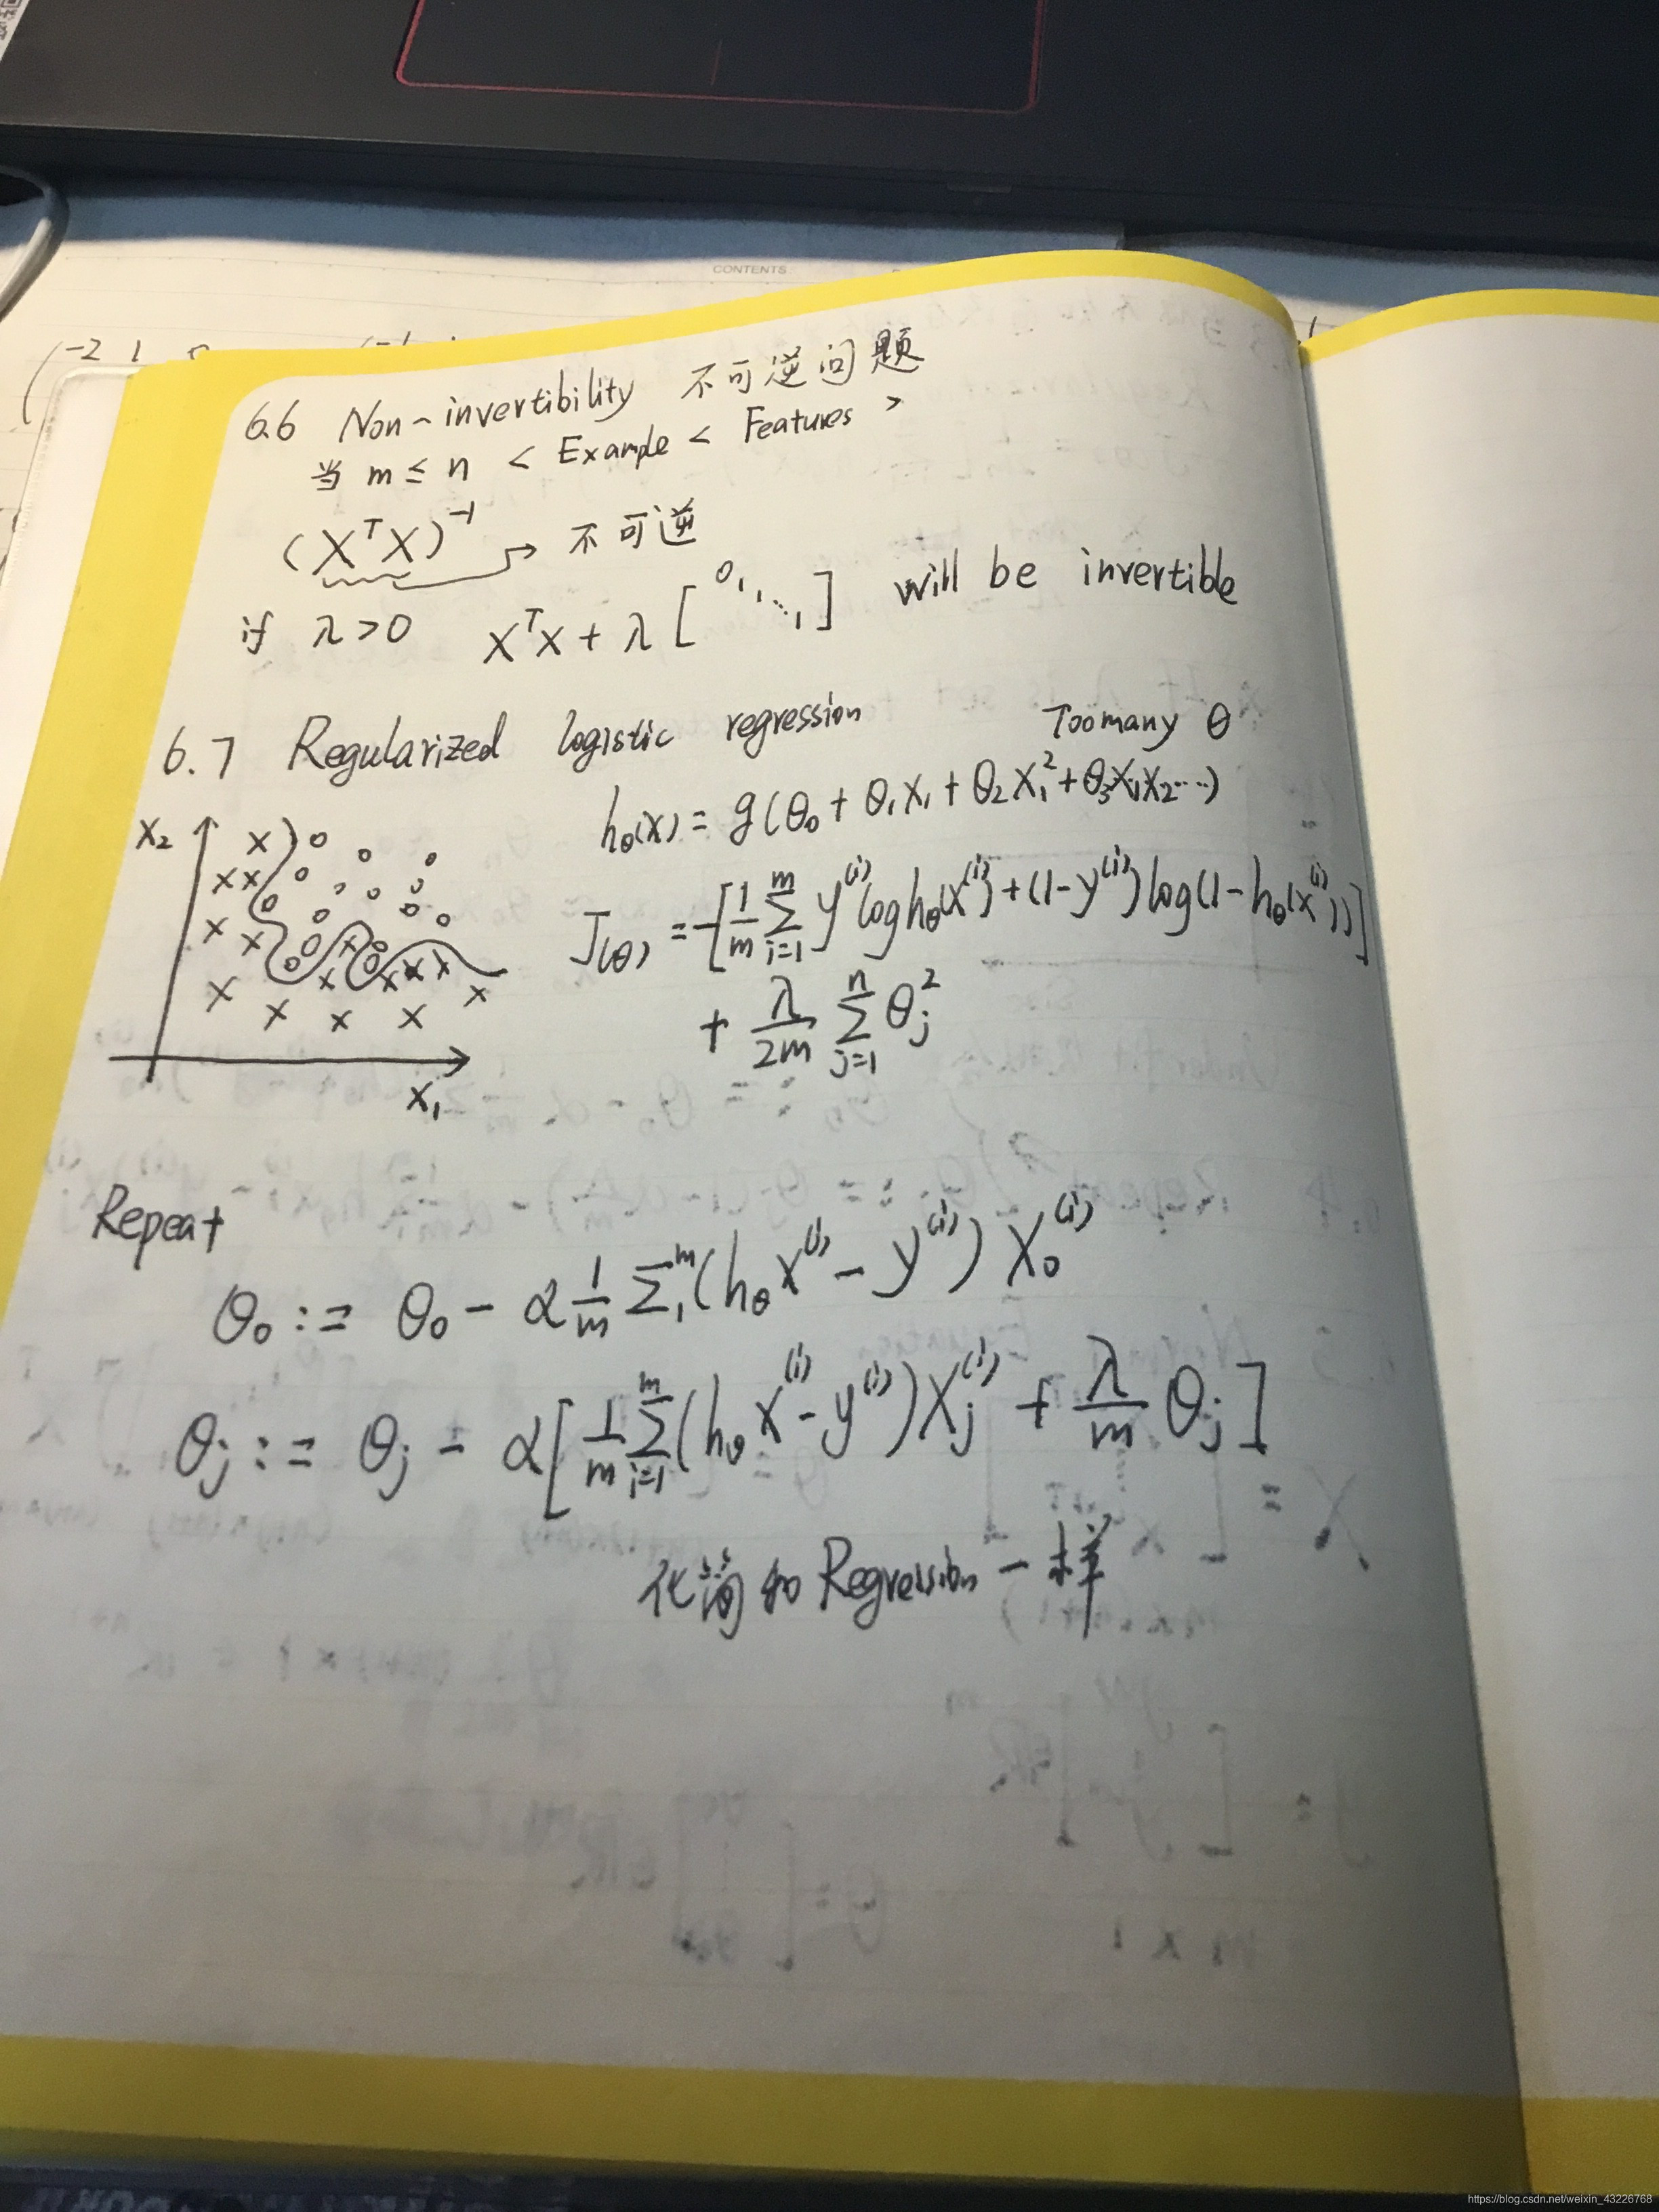 CONTENTS
(-2 1
6.6 Non-invertibility 不可逆问题
当 m ≤ n < Example < Features >
(XᵀX)⁻¹ → 不可逆
if λ>0 XᵀX + λ [ 0 1 1 ⋱ 1 ] will be invertible
6.7 Regularized logistic regression Too many θ
hθ(x) = g(θ₀ + θ₁x₁ + θ₂x₁² + θ₃x₁x₂...)
J(θ) = -[1/m Σᵢ₌₁ᵐ y⁽ⁱ⁾ log hθ(x⁽ⁱ⁾) + (1-y⁽ⁱ⁾) log(1-hθ(x⁽ⁱ⁾))]
+ λ/2m Σⱼ₌₁ⁿ θⱼ²
X₂
X₁
Repeat
θ₀ := θ₀ - α 1/m Σ₁ᵐ (hθ x⁽ⁱ⁾ - y⁽ⁱ⁾) X₀⁽ⁱ⁾
θⱼ := θⱼ - α[1/m Σᵢ₌₁ᵐ (hθ x⁽ⁱ⁾ - y⁽ⁱ⁾) Xⱼ⁽ⁱ⁾ + λ/m θⱼ]
化简如 Regression 一样
https://blog.csdn.net/weixin_43226768